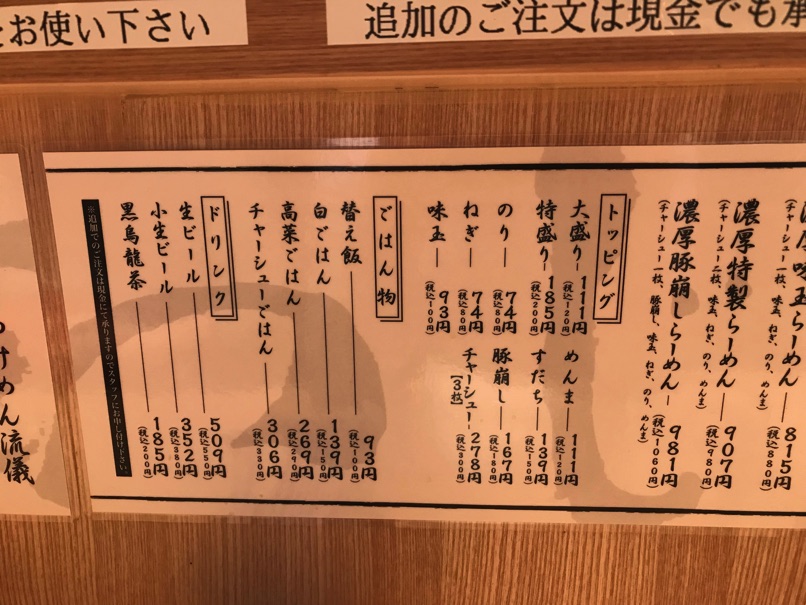 をお使い下さい
追加のご注文は現金でも承
味玉らーめん 815円
(チャーシュー一枚、味玉、ねぎ、のり、めんま) (税込880円)
濃厚特製らーめん 907円
(チャーシュー二枚、味玉、ねぎ、のり、めんま) (税込980円)
濃厚豚崩しらーめん 981円
(チャーシュー一枚、豚崩し、味玉、ねぎ、のり、めんま) (税込1060円)
トッピング
大盛り 111円
(税込120円)
特盛り 185円
(税込200円)
のり 74円
(税込80円)
ねぎ 74円
(税込80円)
味玉 93円
(税込100円)
めんま 111円
(税込120円)
すだち 139円
(税込150円)
豚崩し 167円
(税込180円)
チャーシュー【3枚】 278円
(税込300円)
ごはん物
替え飯 93円
(税込100円)
白ごはん 139円
(税込150円)
高菜ごはん 269円
(税込290円)
チャーシューごはん 306円
(税込330円)
ドリンク
生ビール 509円
(税込550円)
小生ビール 352円
(税込380円)
黒烏龍茶 185円
(税込200円)
※追加でのご注文は現金にて承りますのでスタッフにお申し付け下さい。
つけめん流儀